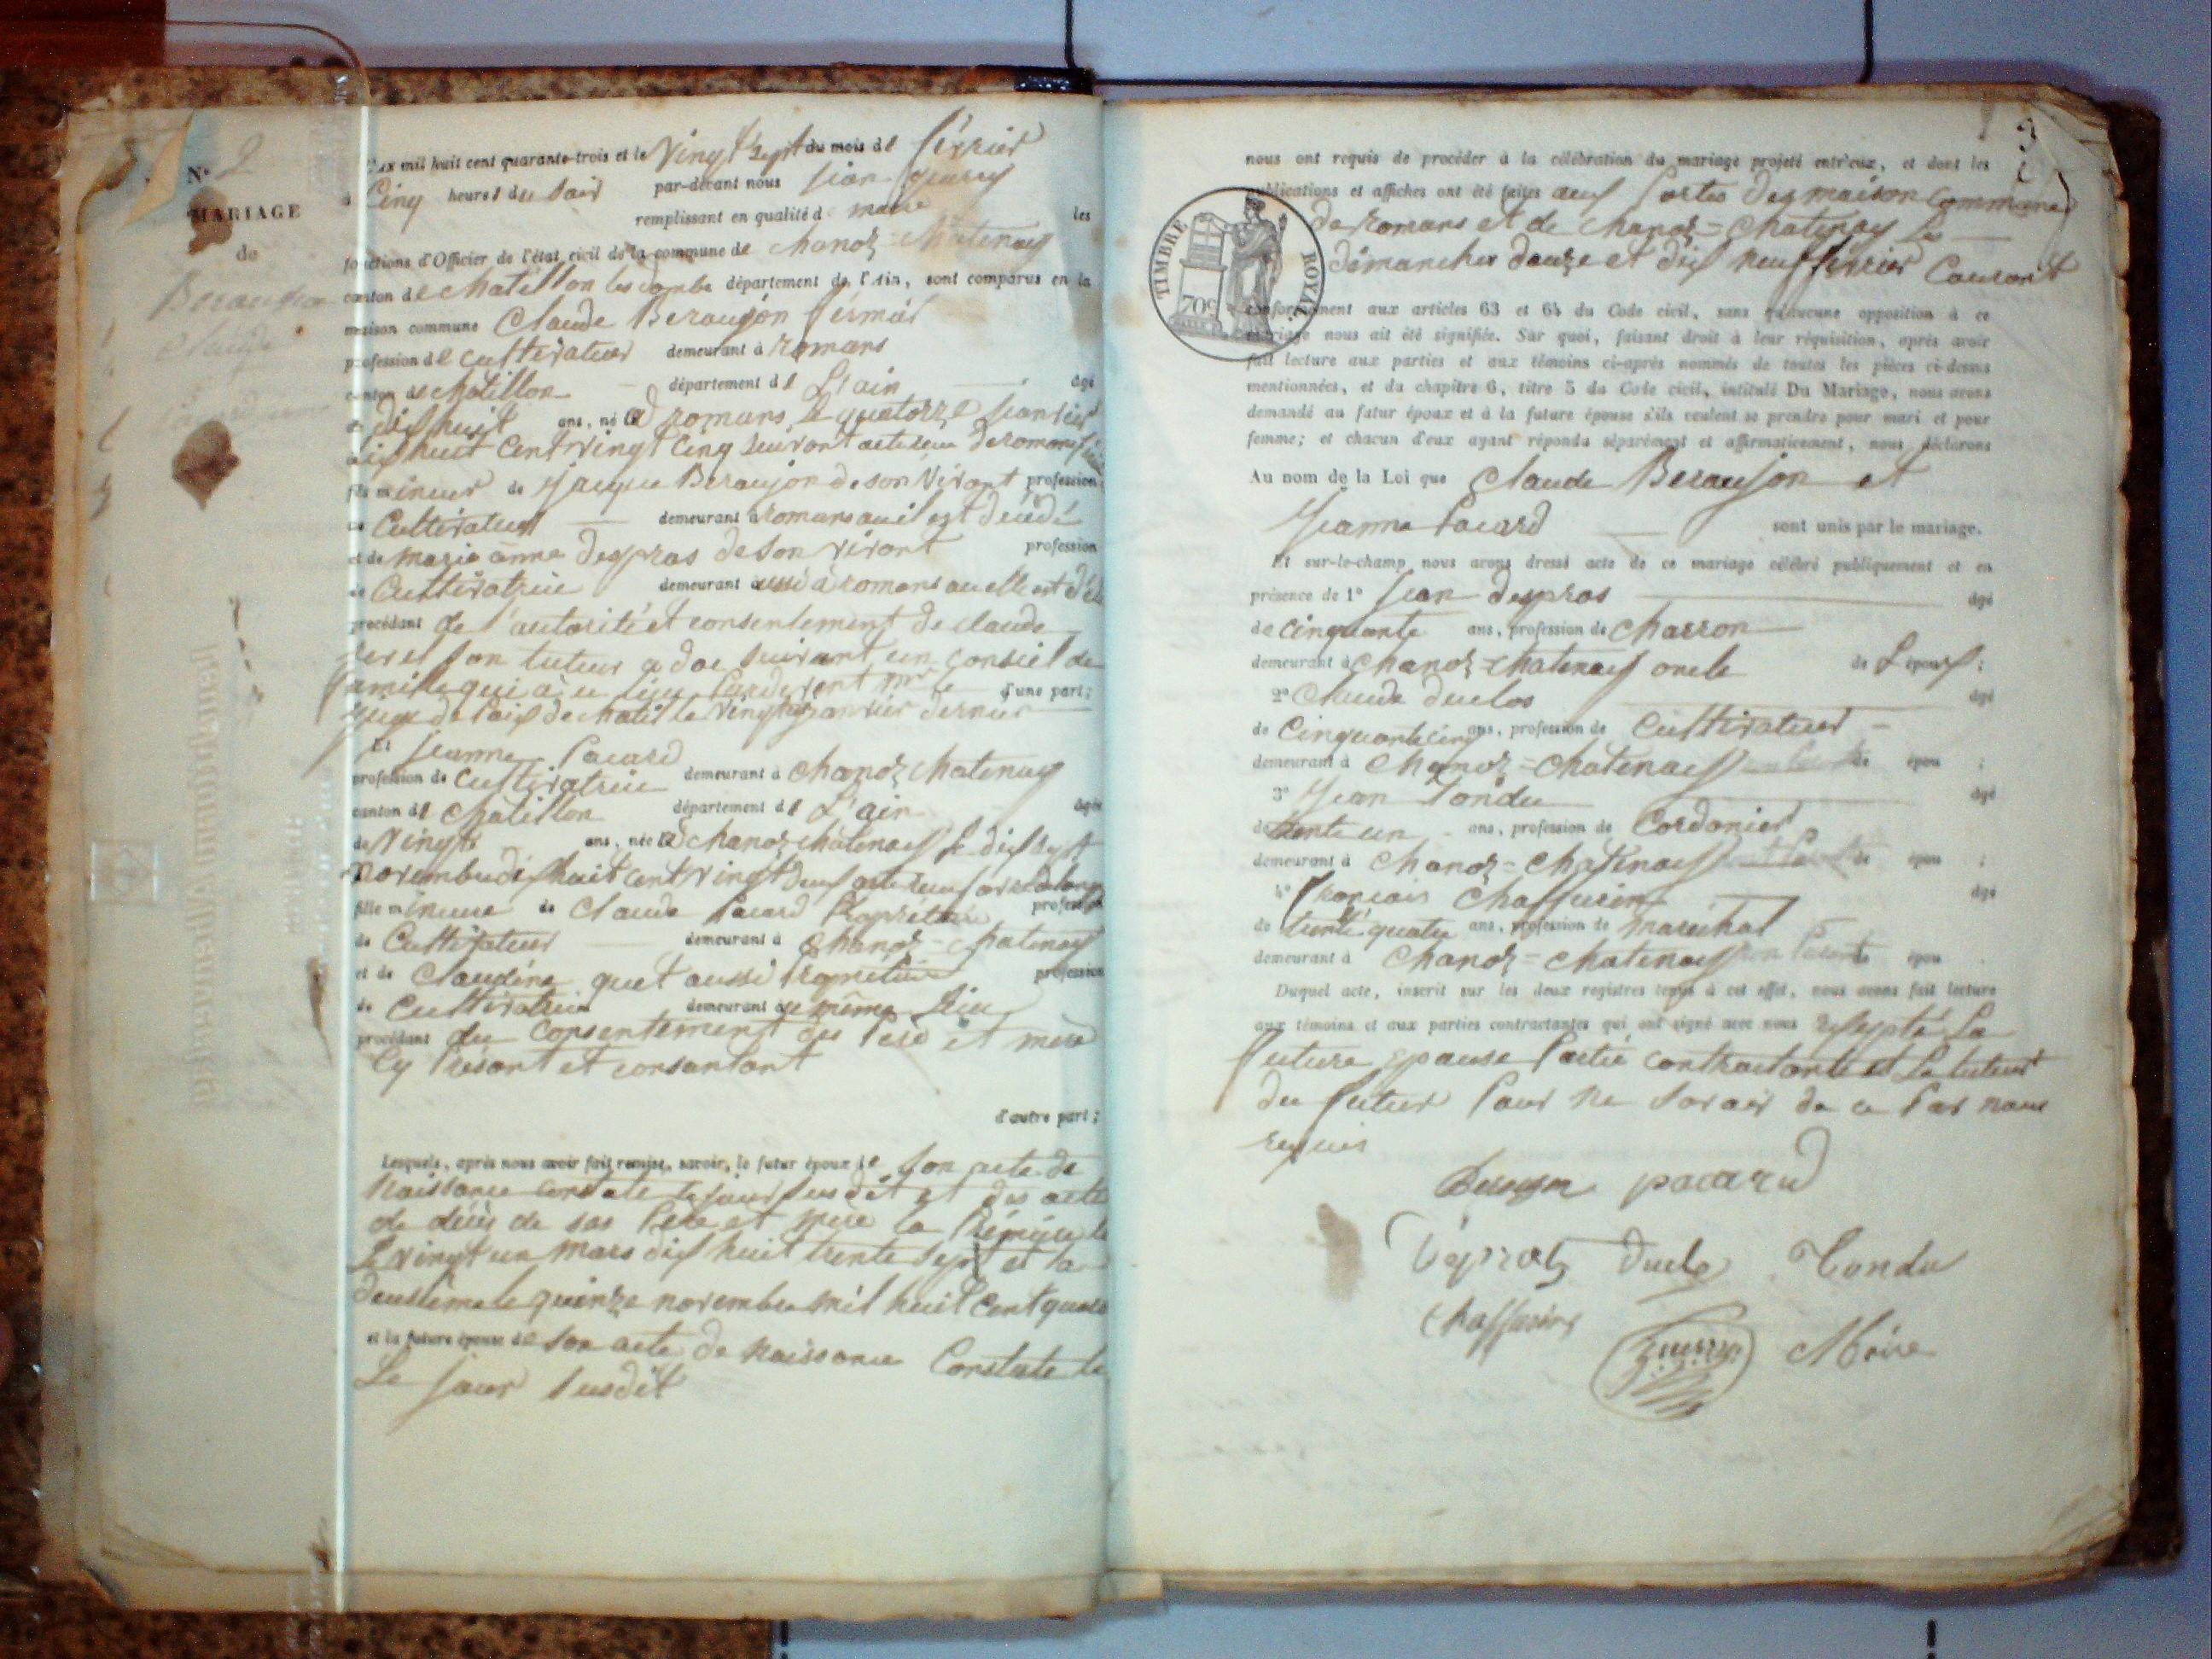 N° 2
MARIAGE
de
Beraujon
Claude
L'an mil huit cent quarante-trois et le Vingt sept du mois de février
à Cinq heures du Soir par-devant nous jean guerry
remplissant en qualité de maire les
fonctions d'Officier de l'état civil de la commune de chanoz Chatenay
canton de chatillon les dombe département de l'Ain, sont comparus en la
maison commune Claude Beraujon fermier
profession de cultivateur demeurant à romans
canton de chatillon département de L'ain âgé
de dix huit ans, né à romans le quatorze janvier
dix huit Cent vingt Cinq suivant acte de romans
fils mineur de jacque Beraujon de son Vivant profession
de Cultivateur demeurant à romans ou il est décédé
et de marie anne despras de son vivant profession
de Cultivatrice demeurant aussi à romans ou elle est
procédant de l'autorité et consentement de claude
son tuteur a doc suivant un conseil de
famille qui a eu lieu Pardevant mr le d'une part;
juge de Paix de chatil le Vingt janvier dernier
Et jeanne Pacard
profession de Cultivatrice demeurant à chanoz chatenay
canton de Chatillon département de L'ain âgée
de Vingt ans, née à chanoz chatenay le dix sept
novembre dix huit cent vingt deux acte
fille mineure de Claude Pacard Propriétaire profession
de Cultivateur demeurant à Chanoz = chatenay
et de Claudine quet aussi Propriétaire profession
de Cultivatrice demeurant au même Lieu
procédant du Consentement des Père et mère
Cy Présant et consantant
d'autre part;
Lesquels, après nous avoir fait remise, savoir, le futur époux de son acte de
Naissance constate le jour sus dit et des acte
de décès de ses Père et Mère la Première
Le vingt un Mars dix huit trente sept et la
deusième le quinze novembre mil huit Cent
et la future épouse de son acte de Naissance Constate le
Le jour susdit
3
nous ont requis de procéder à la célébration du mariage projeté entr'eux, et dont les
publications et affiches ont été faites aux Portes des maison Commune
de romans et de chanoz = chatenay les
dimanches douze et dix neuf février Courant
TIMBRE ROYAL
70c
conformément aux articles 63 et 64 du Code civil, sans qu'aucune opposition à ce
mariage nous ait été signifiée. Sur quoi, faisant droit à leur réquisition, après avoir
fait lecture aux parties et aux témoins ci-après nommés de toutes les pièces ci-dessus
mentionnées, et du chapitre 6, titre 5 du Code civil, intitulé Du Mariage, nous avons
demandé au futur époux et à la future épouse s'ils veulent se prendre pour mari et pour
femme; et chacun d'eux ayant répondu séparément et affirmativement, nous déclarons
Au nom de la Loi que Claude Beraujon et
Jeanne Pacard sont unis par le mariage.
Et sur-le-champ nous avons dressé acte de ce mariage célébré publiquement et en
présence de 1° Jean despras âgé
de cinquante ans, profession de Charron
demeurant à chanoz = chatenay oncle de L'époux;
2° Claude duclos âgé
de Cinquante cinq ans, profession de Cultivateur
demeurant à Chanoz = Chatenay de épou ;
3° Jean Tondu âgé
de trente un ans, profession de Cordonier
demeurant à Chanoz = Chatenay de épou ;
4° françois Chaffurin âgé
de trente quatre ans, profession de maréchal
demeurant à Chanoz = chatenay non Parent de épou .
Duquel acte, inscrit sur les deux registres tenus à cet effet, nous avons fait lecture
aux témoins et aux parties contractantes qui ont signé avec nous Exsepté La
future épouse Partie contractante et Le tuteur
du futur Pour ne savoir de ce Par nous
requis
Beraujon pacard
Déproz Duclo Tondu
Chaffurin guerry Maire